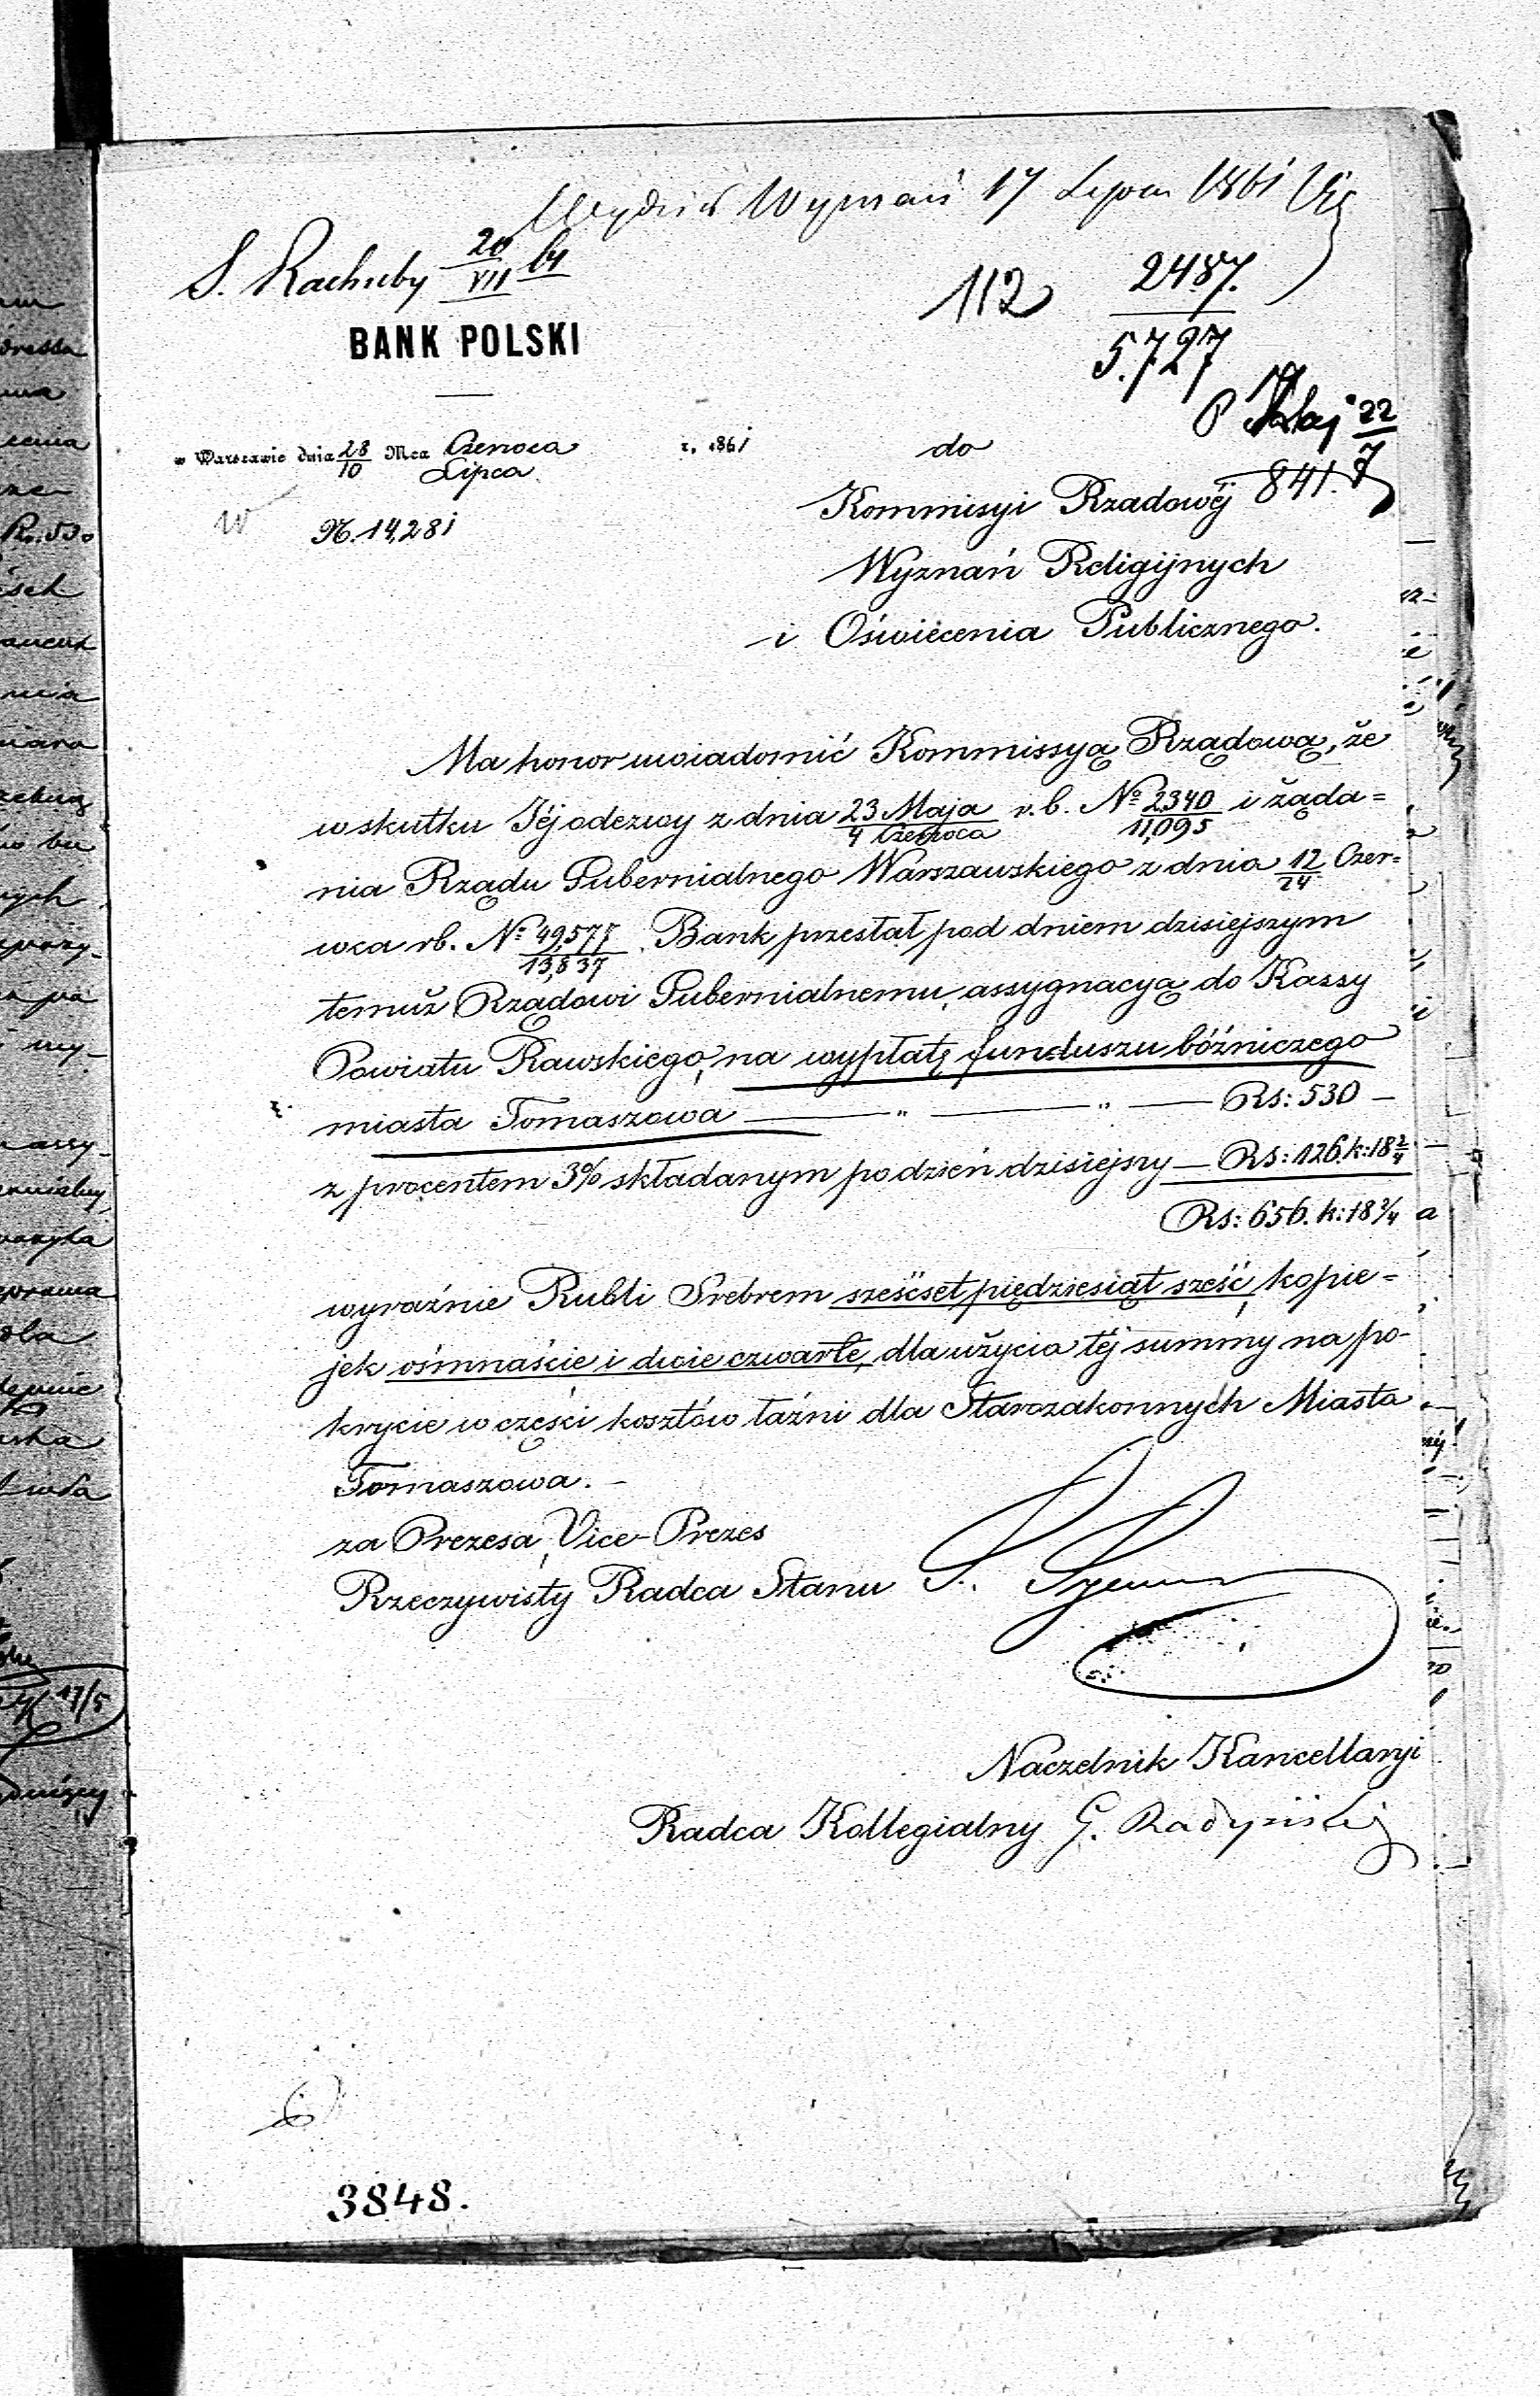 Wydział Wyznań 17 Lipca 1861
S. Rachuby 20/VII 61
112 2487/5.727
BANK POLSKI
22/7
w Warszawie dnia 28/10 Mca Czerwca/Lipca r. 1861
do
841.
N. 14,281
Kommisyi Rządowéj
Wyznań Religijnych
i Oświécenia Publicznego.
Ma honor uwiadomić Kommissyą Rządową, że
wskutku Jéj odezwy z dnia 23 Maja/4 Czerwca r.b. No 2340/11,095 i żąda=
nia Rządu Gubernialnego Warszawskiego z dnia 12/24 Czer=
wca rb. No 49,577/13,837 Bank przesłał pod dniem dzisiejszym
temuż Rządowi Gubernialnemu, assygnacyą do Kassy
Powiatu Rawskiego, na wypłatę funduszu bóżniczego
miasta Tomaszowa — " — " — Rs: 530 —
z procentem 3% składanym po dzień dzisiejszy — Rs: 126. k: 18 2/4
Rs: 656. k: 18 2/4
wyraźnie Rubli Srebrem sześćset pięدziesiąt sześć, kopie=
jek ośmnaście i dwie czwarte, dla użycia téj summy na po-
krycie w części kosztów łaźni dla Starozakonnych Miasta
Tomaszowa. —
za Prezesa, Vice-Prezes
Rzeczywisty Radca Stanu
Naczelnik Kancellaryi
Radca Kollegialny G. Radyński
3848.